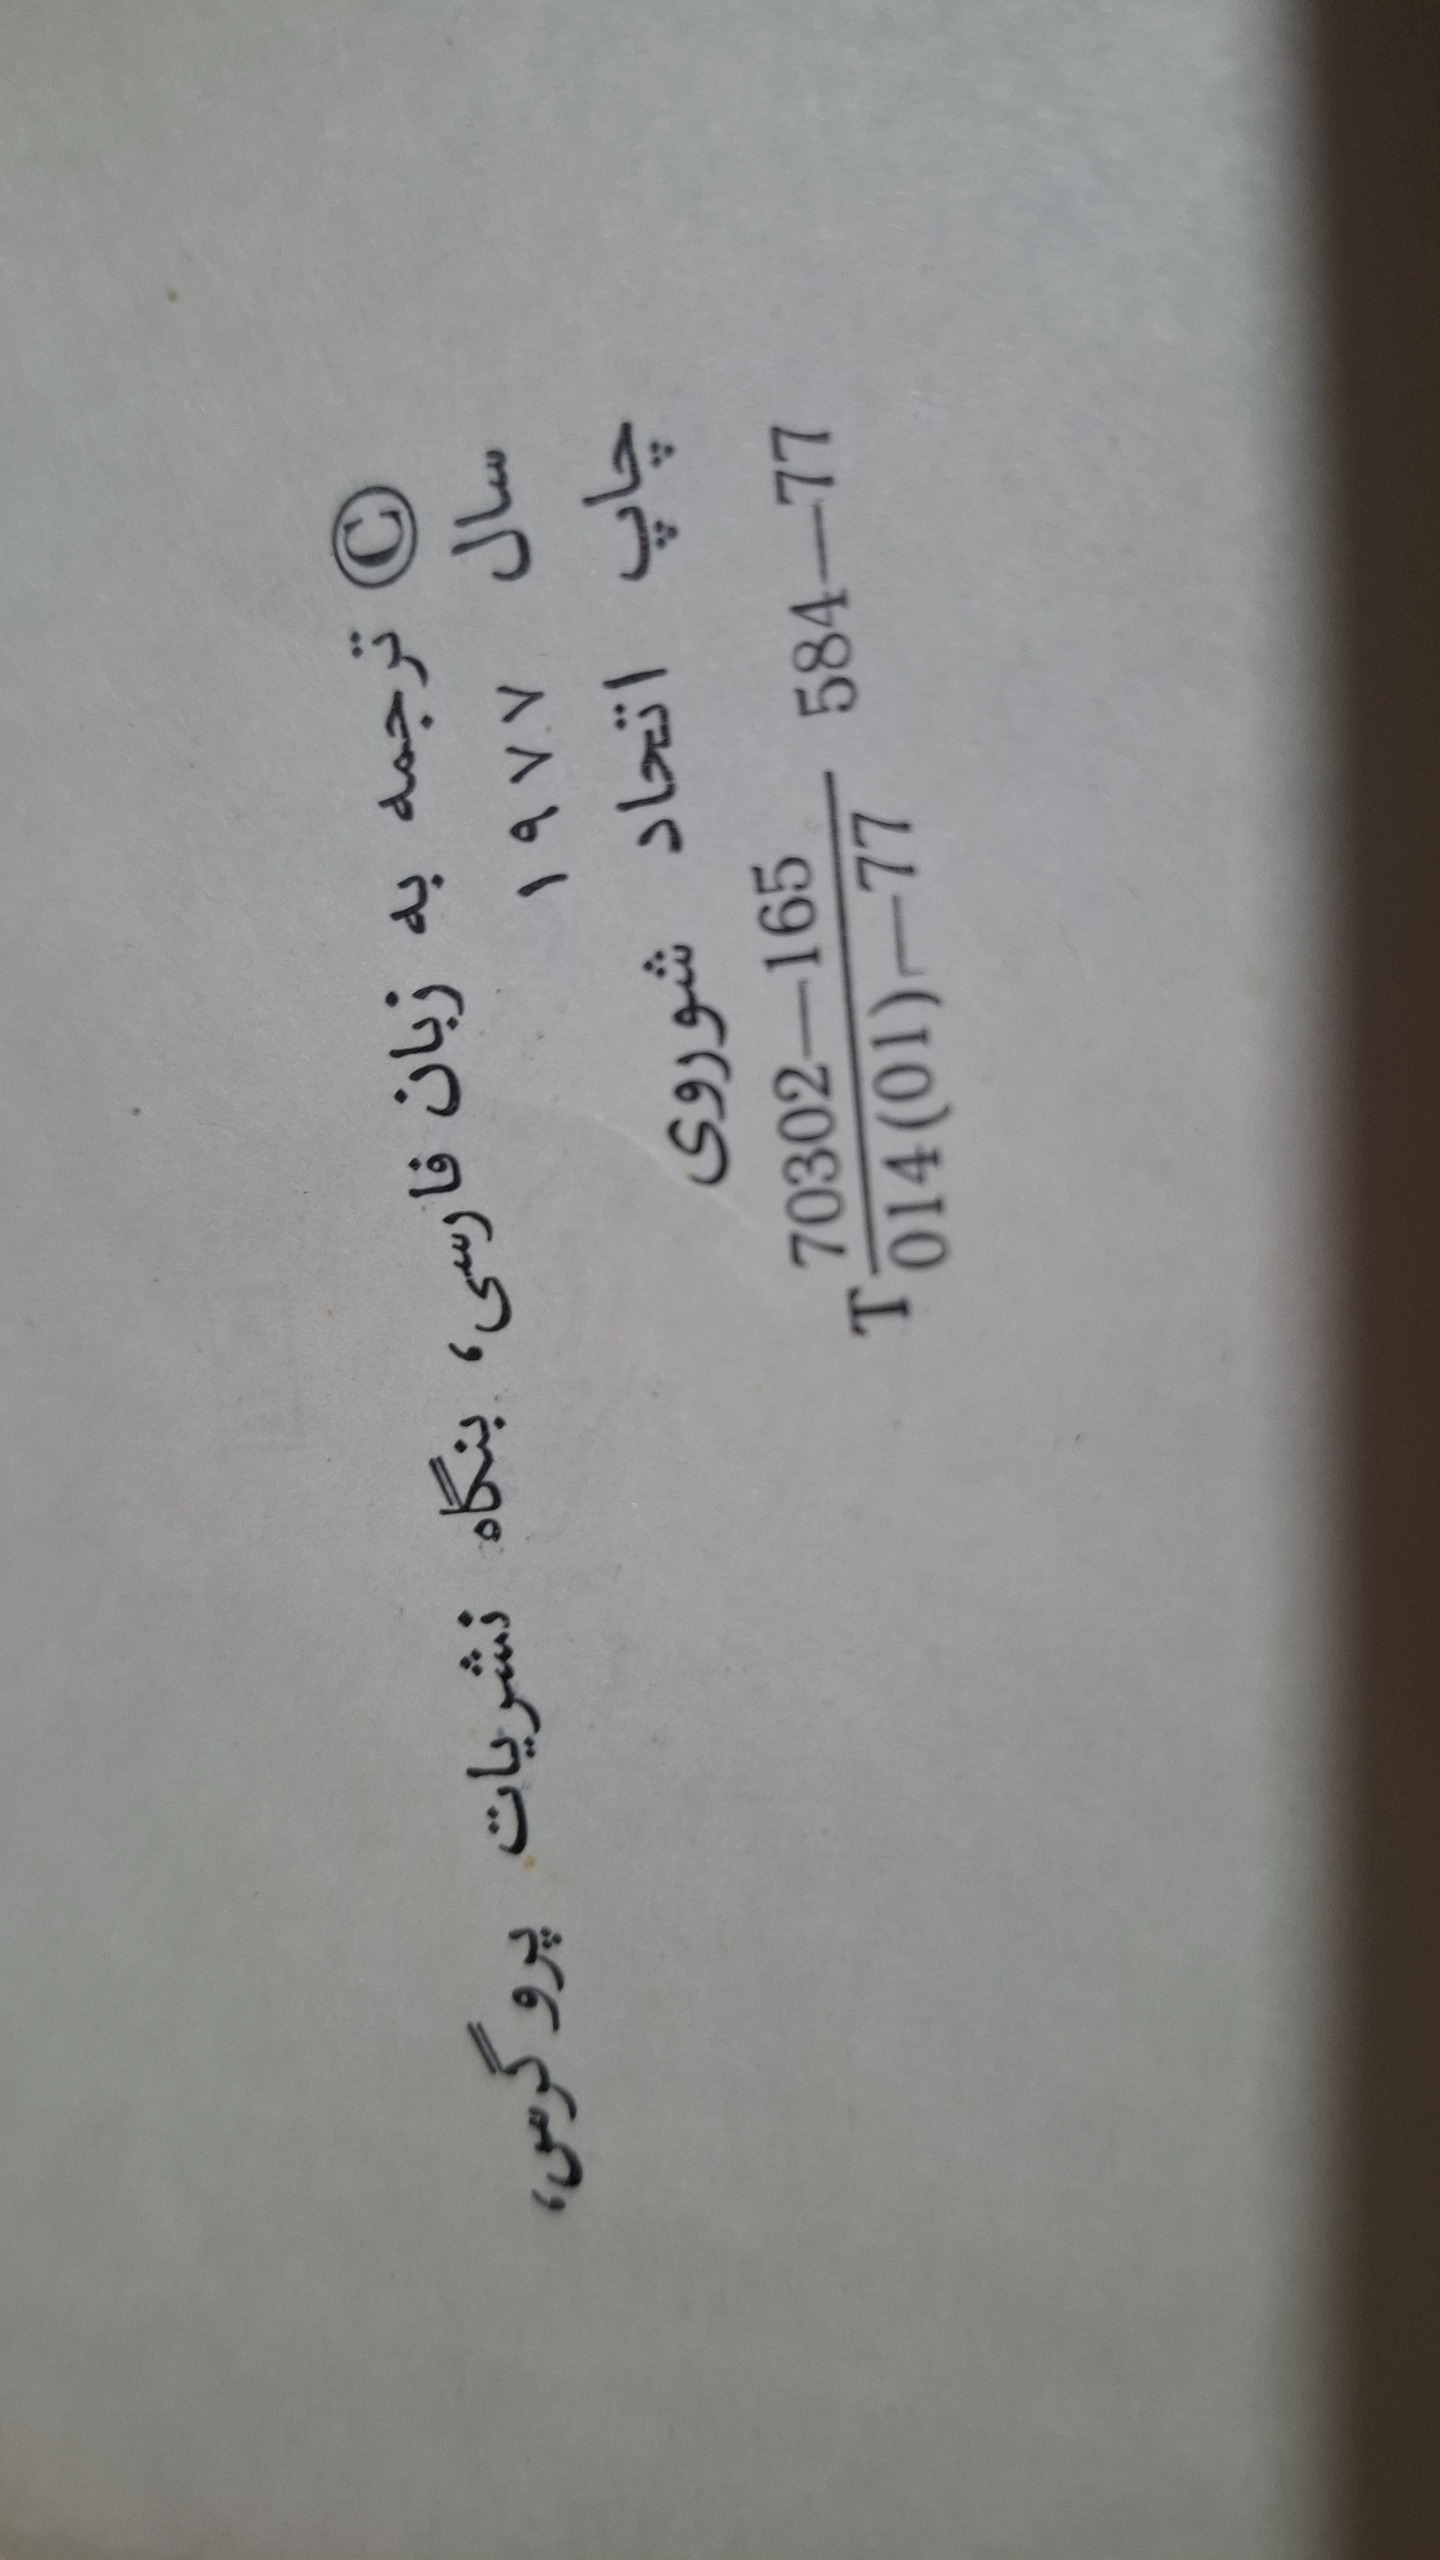 © ترجمه به زبان فارسی، بنگاه نشریات پروگرس،
سال ۱۹۷۷
چاپ اتحاد شوروی
T 70302—165 584—77
014(01)—77